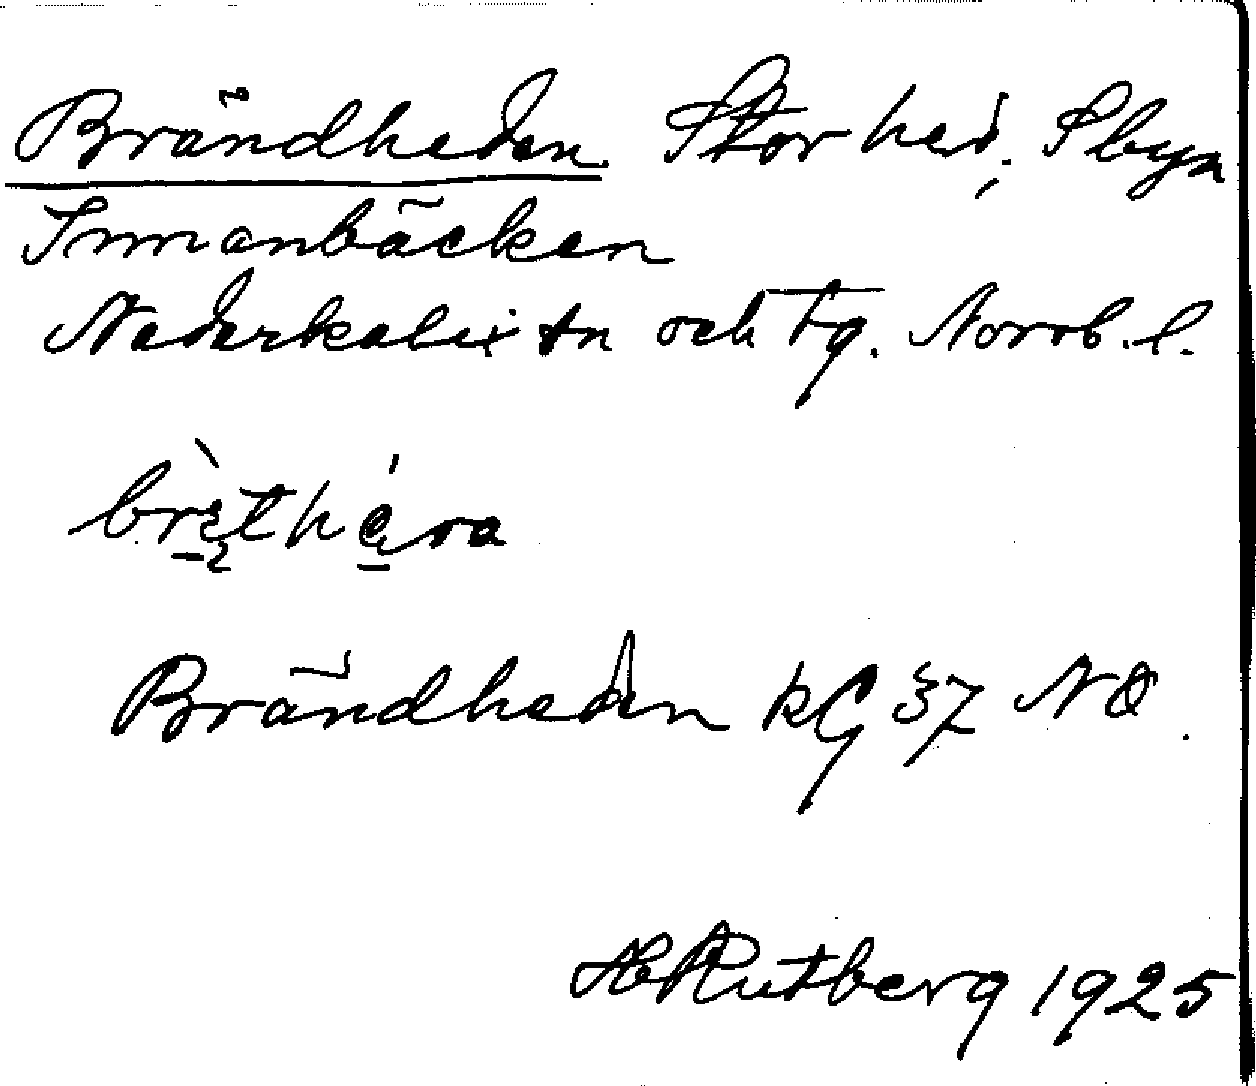 Brändheden Stor hed; Sbyn
Innanbäcken
Nederkalix sn och tg. Norrb. l.
Brändheden kG 37 NO.
H Rutberg 1925